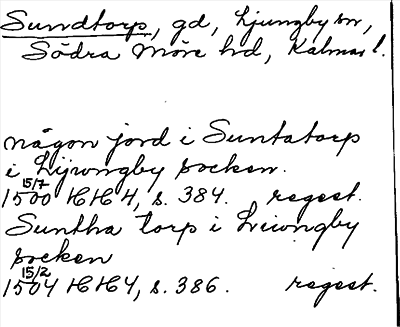 Sundtorp, gd, Ljungby sn,
Södra Möre hd, Kalmar l.
någon jord i Suntatorp
i Lijwngby socken.
15/7
1500 HH4, s. 384. regest.
Suntha torp i Lviwngby
socken
15/2
1504 HH4, s. 386. regest.